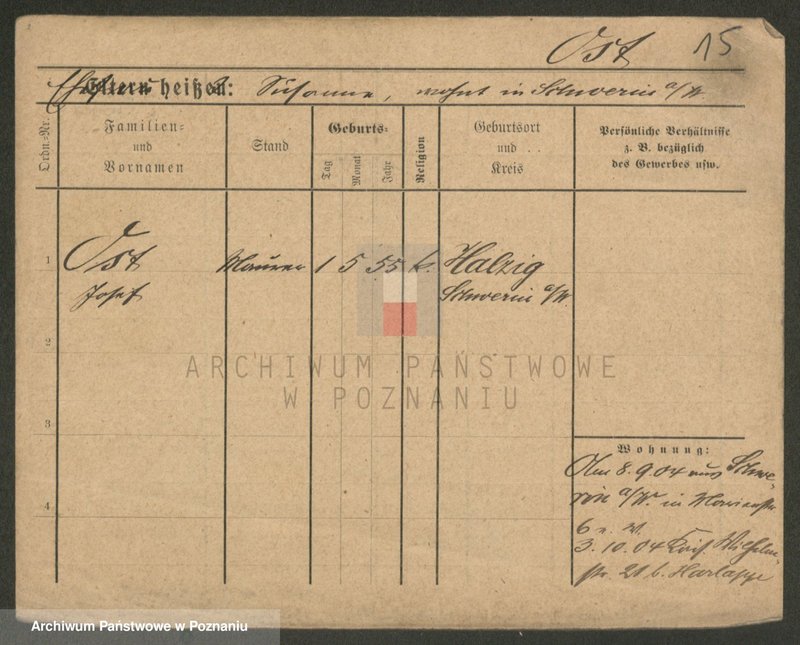 Ost 15
Eltern heißen: Susanna, wohnt in Schwerin a/W.
Ordn.-Nr.
Familien-
und
Vornamen
Stand
Geburts-
Tag
Monat
Jahr
Religion
Geburtsort
und
Kreis
Persönliche Verhältnisse
z. B. bezüglich
des Gewerbes usw.
1 Ost Maurer 1 5 55 k. Halzig
Josef Schwerin a/W.
2
3
4
ARCHIWUM PAŃSTWOWE
W POZNANIU
Wohnung:
Am 8.9.04 aus Schwe-
rin a/W. in
6
3.10.04 Wilhelm-
str. 21 b.
Archiwum Państwowe w Poznaniu